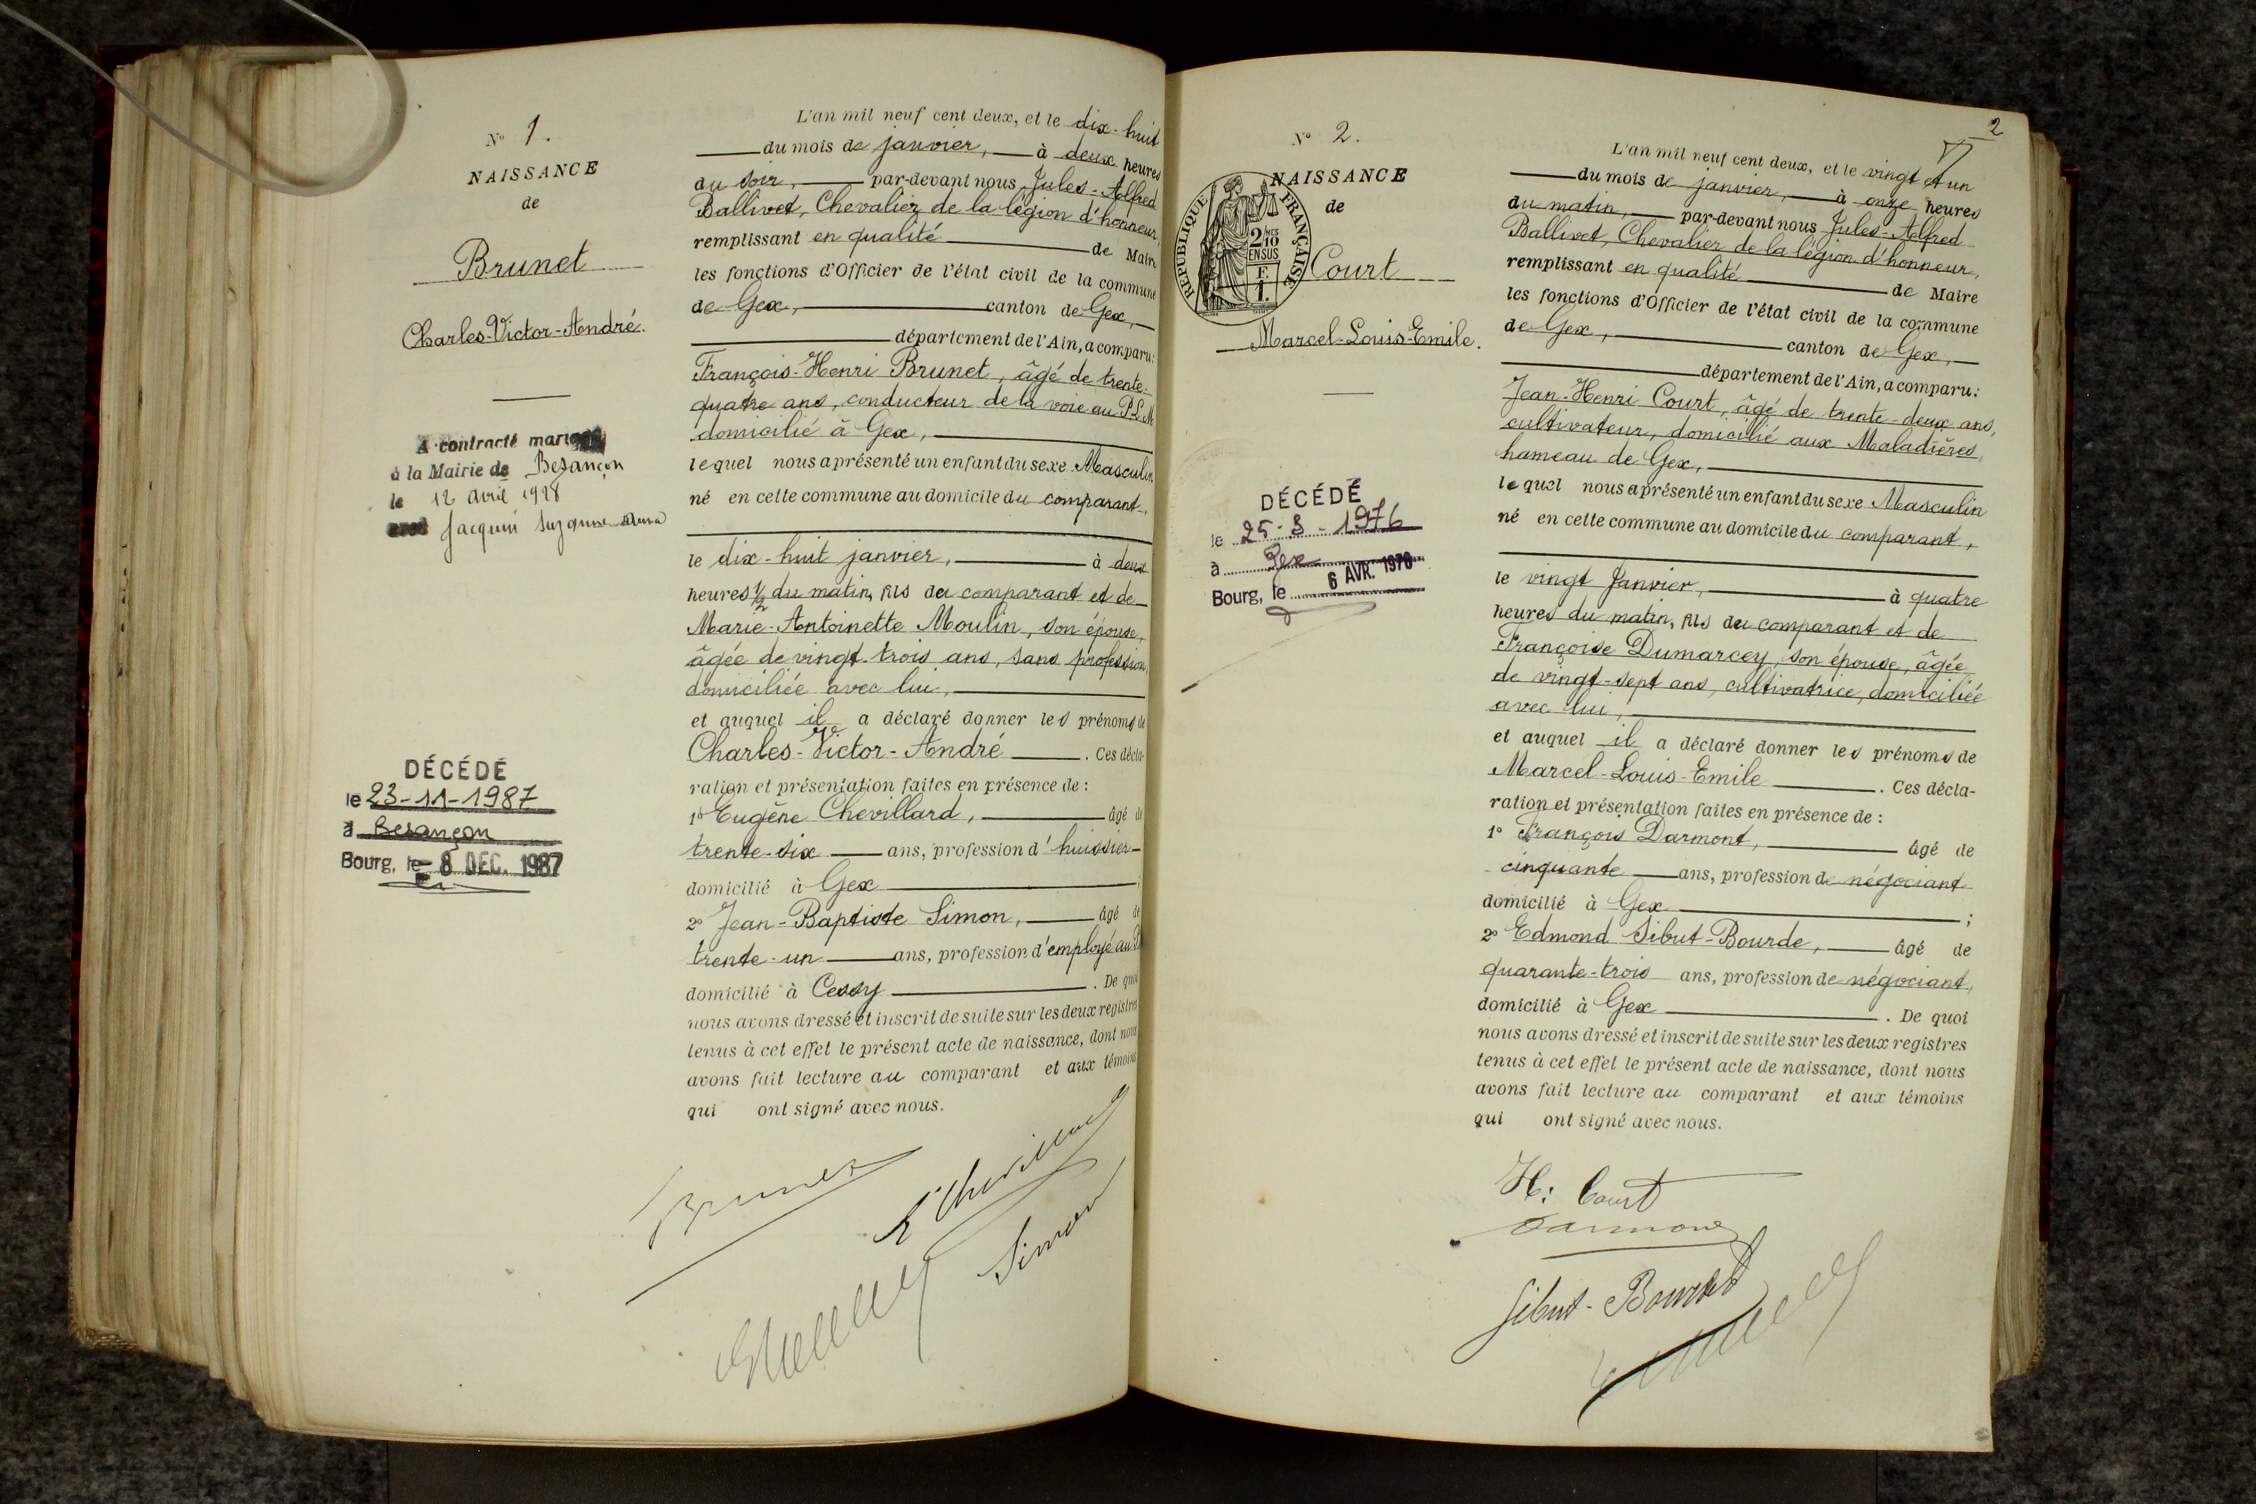 N° 1.
NAISSANCE
de
Brunet
Charles-Victor-André.
A contracté mariage
à la Mairie de Besançon
le 12 avril 1928
avec Jacquin Suzanne
DÉCÉDÉ
le 23-11-1987
à Besançon
Bourg, le 8 DEC. 1987
L'an mil neuf cent deux, et le dix-huit
du mois de janvier, à deux heures
du soir, par-devant nous Jules-Alfred
Ballivet, Chevalier de la légion d'honneur,
remplissant en qualité de Maire
les fonctions d'Officier de l'état civil de la commune
de Gex, canton de Gex,
département de l'Ain, a comparu:
François-Henri Brunet, âgé de trente-
quatre ans, conducteur de la voie au P.L.M
domicilié à Gex,
lequel nous a présenté un enfant du sexe Masculin
né en cette commune au domicile du comparant,
le dix-huit janvier, à deux
heures ½ du matin, fils du comparant et de
Marie-Antoinette Moulin, son épouse,
âgée de vingt-trois ans, sans profession,
domiciliée avec lui,
et auquel il a déclaré donner les prénoms de
Charles-Victor-André. Ces décla-
ration et présentation faites en présence de :
1° Eugène Chevillard, âgé de
trente-six ans, profession d'huissier
domicilié à Gex ;
2° Jean-Baptiste Simon, âgé de
trente-un ans, profession d'employé au
domicilié à Cessy. De quoi
nous avons dressé et inscrit de suite sur les deux registres
tenus à cet effet le présent acte de naissance, dont nous
avons fait lecture au comparant et aux témoins
qui ont signé avec nous.
Brunet
E Chevillard
Simon
2
N° 2.
NAISSANCE
de
RÉPUBLIQUE FRANÇAISE
2/10 MES
EN SUS
F.
1.
Court
Marcel-Louis-Emile.
DÉCÉDÉ
le 25-3-1976
à Gex
Bourg, le 6 AVR. 1976
L'an mil neuf cent deux, et le vingt et un
du mois de janvier, à onze heures
du matin, par-devant nous Jules-Alfred
Ballivet, Chevalier de la légion d'honneur,
remplissant en qualité de Maire
les fonctions d'Officier de l'état civil de la commune
de Gex, canton de Gex,
département de l'Ain, a comparu:
Jean-Henri Court, âgé de trente-deux ans,
cultivateur, domicilié aux Maladières,
hameau de Gex,
lequel nous a présenté un enfant du sexe Masculin
né en cette commune au domicile du comparant,
le vingt Janvier, à quatre
heures du matin, fils du comparant et de
Françoise Dumarcey, son épouse, âgée
de vingt-sept ans, cultivatrice, domiciliée
avec lui,
et auquel il a déclaré donner les prénoms de
Marcel-Louis-Emile. Ces décla-
ration et présentation faites en présence de :
1° François Darmont, âgé de
cinquante ans, profession de négociant
domicilié à Gex ;
2° Edmond Sibut-Bourde, âgé de
quarante-trois ans, profession de négociant,
domicilié à Gex. De quoi
nous avons dressé et inscrit de suite sur les deux registres
tenus à cet effet le présent acte de naissance, dont nous
avons fait lecture au comparant et aux témoins
qui ont signé avec nous.
H: Court
Darmont
Sibut-Bourde